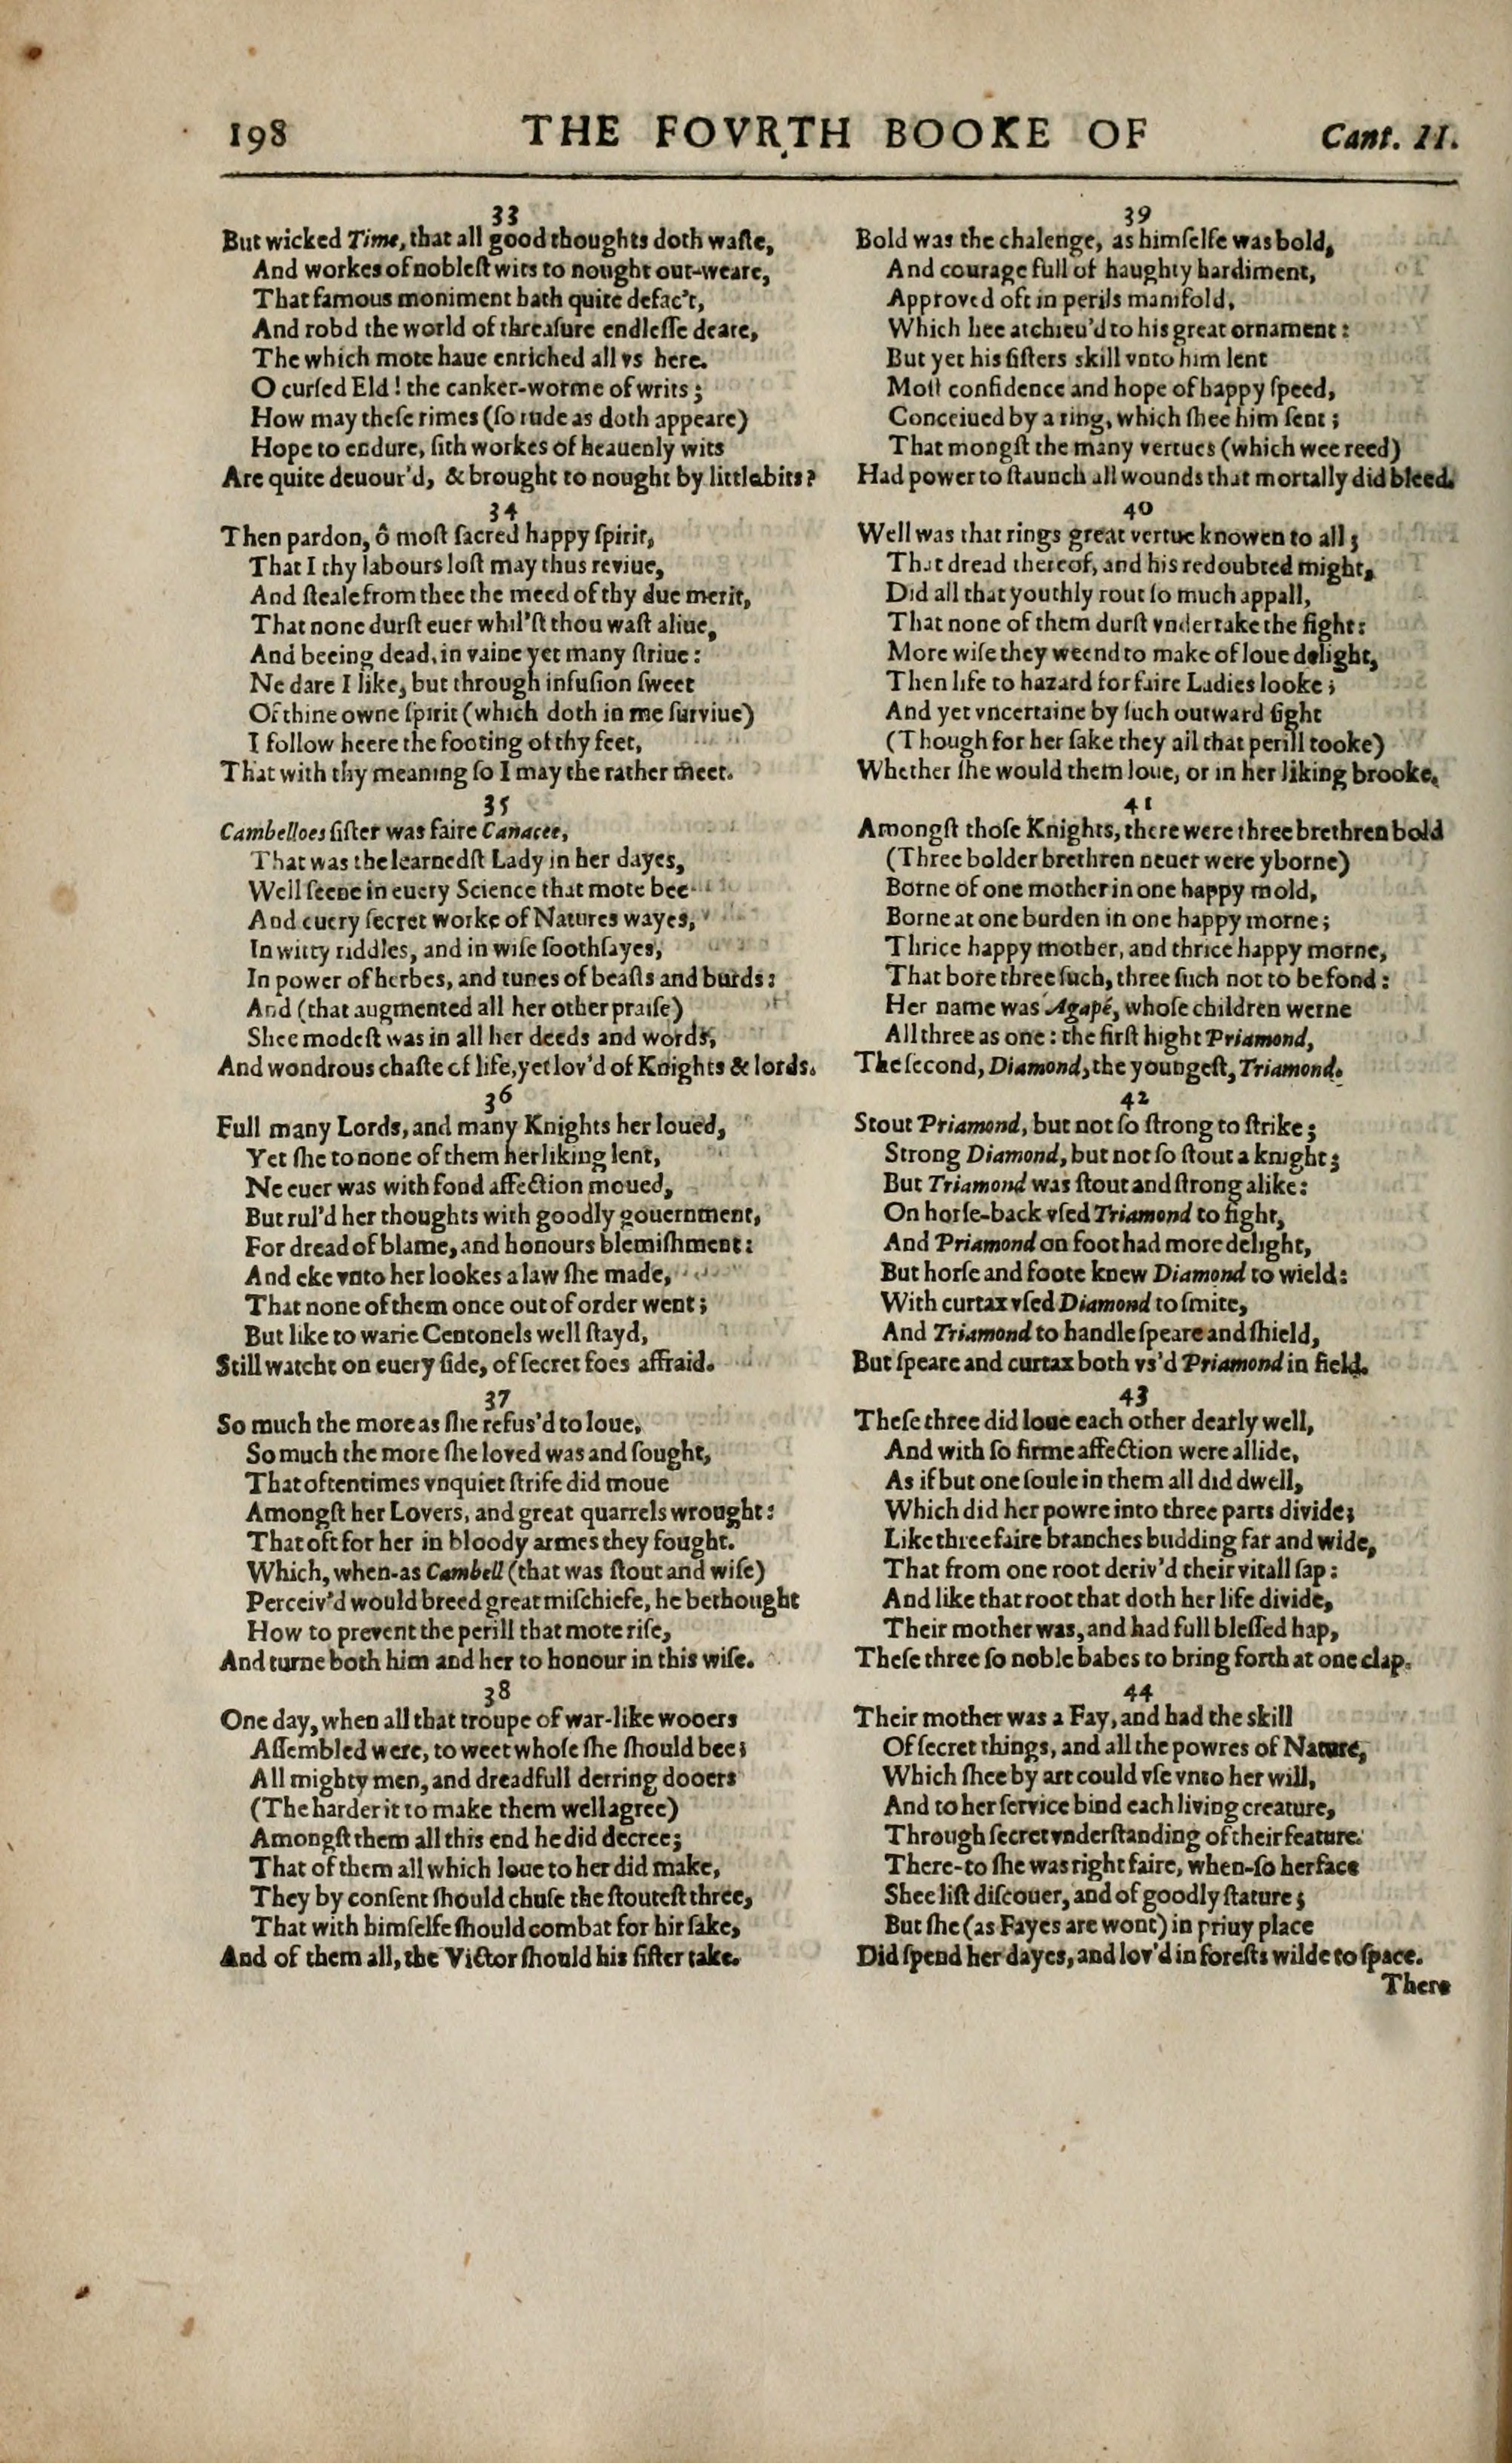 198 THE FOVRTH BOOKE OF Cant. II.
33
But wicked Time, that all good thoughts doth waſte,
And workes of nobleſt wits to nought out-weare,
That famous moniment hath quite defac't,
And robd the world of threaſure endleſſe deare,
The which mote haue enriched all vs here.
O curſed Eld! the canker-worme of writs;
How may theſe rimes (ſo rude as doth appeare)
Hope to endure, ſith workes of heauenly wits
Are quite deuour'd, & brought to nought by little bits?
34
Then pardon, ô moſt ſacred happy ſpirit,
That I thy labours loſt may thus reviue,
And ſteale from thee the meed of thy due merit,
That none durſt euer whil'ſt thou waſt aliue,
And beeing dead, in vaine yet many ſtriue:
Ne dare I like, but through infuſion ſweet
Of thine owne ſpirit (which doth in me ſurviue)
I follow heere the footing of thy feet,
That with thy meaning ſo I may the rather meet.
35
Cambelloes ſiſter was faire Canacee,
That was the learnedſt Lady in her dayes,
Well ſeene in euery Science that mote bee
And euery ſecret worke of Natures wayes,
In witty riddles, and in wiſe ſoothſayes,
In power of herbes, and tunes of beaſts and burds:
And (that augmented all her other praiſe)
Shee modeſt was in all her deeds and words,
And wondrous chaſte of life, yet lov'd of Knights & lords.
36
Full many Lords, and many Knights her loued,
Yet ſhe to none of them her liking lent,
Ne euer was with fond affection moued,
But rul'd her thoughts with goodly gouernment,
For dread of blame, and honours blemiſhment:
And eke vnto her lookes a law ſhe made,
That none of them once out of order went;
But like to warie Centonels well ſtayd,
Still watcht on euery ſide, of ſecret foes affraid.
37
So much the more as ſhe refus'd to loue,
So much the more ſhe loved was and ſought,
That oftentimes vnquiet ſtrife did moue
Amongſt her Lovers, and great quarrels wrought:
That oft for her in bloody armes they fought.
Which, when-as Cambell (that was ſtout and wiſe)
Perceiv'd would breed great miſchiefe, he bethought
How to prevent the perill that mote riſe,
And turne both him and her to honour in this wiſe.
38
One day, when all that troupe of war-like wooers
Aſſembled were, to weet whoſe ſhe ſhould bee;
All mighty men, and dreadfull derring dooers
(The harder it to make them well agree)
Amongſt them all this end he did decree;
That of them all which loue to her did make,
They by conſent ſhould chuſe the ſtouteſt three,
That with himſelfe ſhould combat for hir ſake,
And of them all, the Victor ſhould his ſiſter take.
39
Bold was the chalenge, as himſelfe was bold,
And courage full of haughty hardiment,
Approved oft in perils manifold,
Which hee atchieu'd to his great ornament:
But yet his ſiſters skill vnto him lent
Moſt confidence and hope of happy ſpeed,
Conceiued by a ring, which ſhee him ſent;
That mongſt the many vertues (which wee reed)
Had power to ſtaunch all wounds that mortally did bleed.
40
Well was that rings great vertue knowen to all;
That dread thereof, and his redoubted might,
Did all that youthly rout ſo much appall,
That none of them durſt vndertake the fight:
More wiſe they weend to make of loue delight,
Then life to hazard for faire Ladies looke;
And yet vncertaine by ſuch outward ſight
(Though for her ſake they all that perill tooke)
Whether ſhe would them loue, or in her liking brooke.
41
Amongſt thoſe Knights, there were three brethren bold
(Three bolder brethren neuer were yborne)
Borne of one mother in one happy mold,
Borne at one burden in one happy morne;
Thrice happy mother, and thrice happy morne,
That bore three ſuch, three ſuch not to be fond:
Her name was Agapé, whoſe children werne
All three as one: the firſt hight Priamond,
The ſecond, Diamond, the youngeſt, Triamond.
42
Stout Priamond, but not ſo ſtrong to ſtrike;
Strong Diamond, but not ſo ſtout a knight;
But Triamond was ſtout and ſtrong alike:
On horſe-back vſed Triamond to fight,
And Priamond on foot had more delight,
But horſe and foote knew Diamond to wield:
With curtax vſed Diamond to ſmite,
And Triamond to handle ſpeare and ſhield,
But ſpeare and curtax both vs'd Priamond in field.
43
Theſe three did loue each other dearly well,
And with ſo firme affection were allide,
As if but one ſoule in them all did dwell,
Which did her powre into three parts divide;
Like three faire branches budding far and wide,
That from one root deriv'd their vitall ſap:
And like that root that doth her life divide,
Their mother was, and had full bleſſed hap,
Theſe three ſo noble babes to bring forth at one clap.
44
Their mother was a Fay, and had the skill
Of ſecret things, and all the powres of Nature,
Which ſhee by art could vſe vnto her will,
And to her ſervice bind each living creature,
Through ſecret vnderſtanding of their feature.
There-to ſhe was right faire, when-ſo her face
Shee liſt diſcouer, and of goodly ſtature;
But ſhe (as Fayes are wont) in priuy place
Did ſpend her dayes, and lov'd in foreſts wilde to ſpace.
There